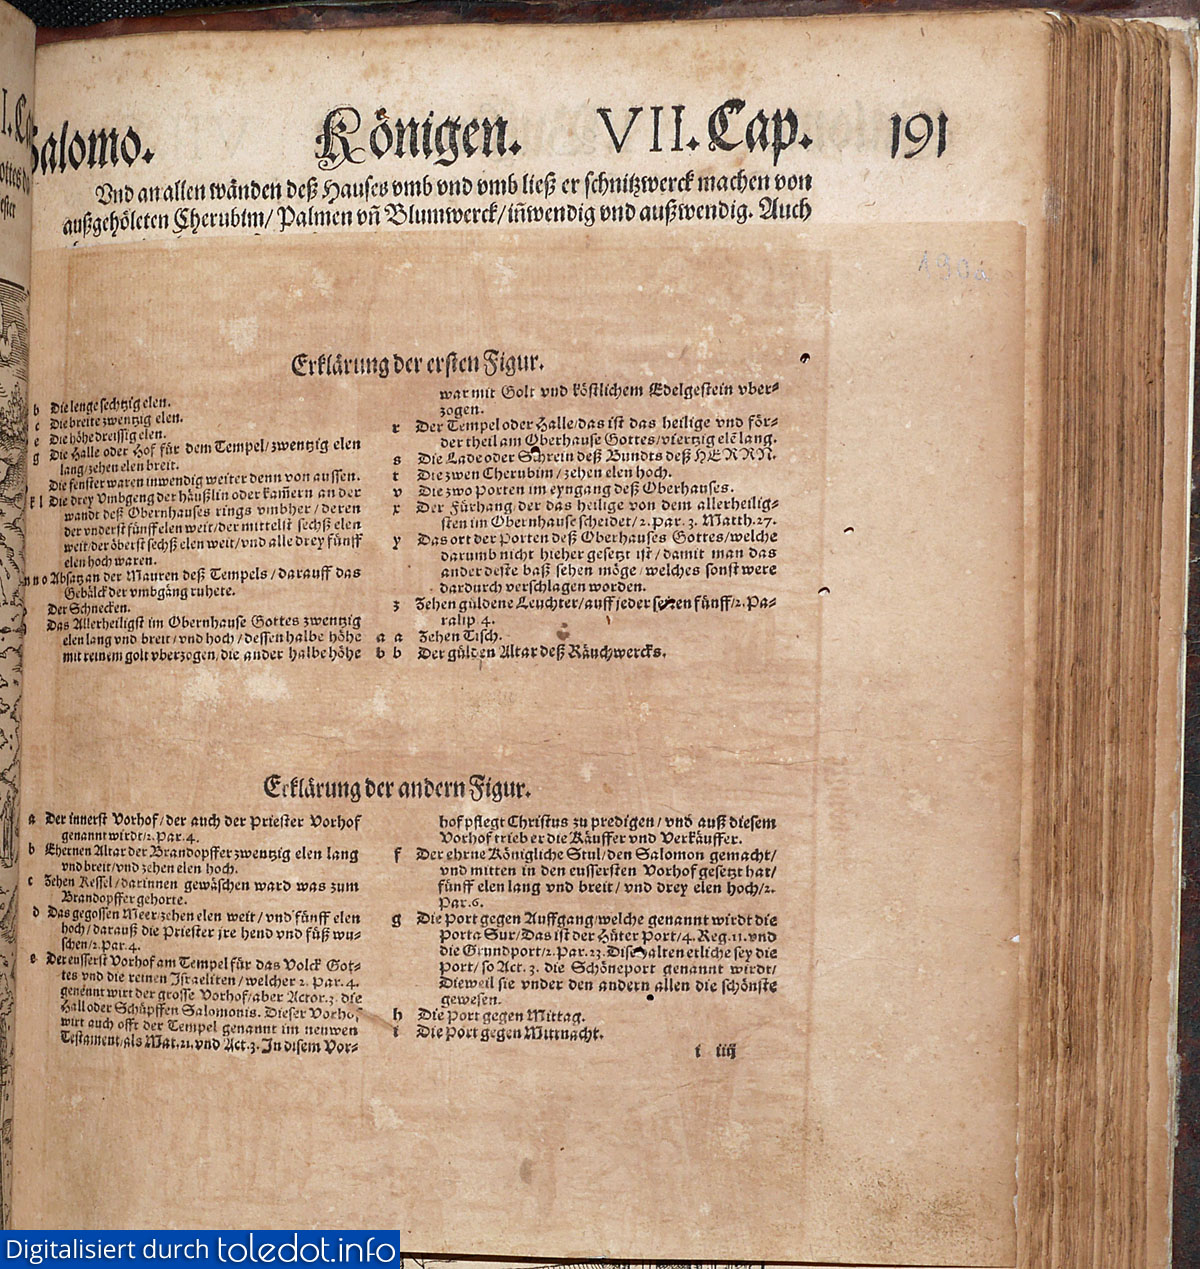 Salomo. Königen. VII. Cap. 191
Vnd an allen wänden deß Hauses vmb vnd vmb ließ er schnitzwerck machen von
außgehöleten Cherubim/ Palmen vñ Blumwerck/ iñwendig vnd außwendig. Auch
Erklärung der ersten Figur.
b Die lenge sechtzig elen.
c Die breite zwentzig elen.
e Die höhe dreissig elen.
g Die Halle oder Hof für dem Tempel/ zwentzig elen
lang/ zehen elen breit.
Die fenster waren inwendig weiter denn von aussen.
k l Die drey Vmbgeng der häußlin oder kam̃ern an der
wandt deß Obernhauses rings vmbher/ deren
der vnderst fünff elen weit/ der mittelst sechß elen
weit/ der öberst sechß elen weit/ vnd alle drey fünff
elen hoch waren.
n o Absatz an der Mauren deß Tempels/ darauff das
Gebälck der vmbgäng ruhete.
Der Schnecken.
Das Allerheiligst im Obernhause Gottes zwentzig
elen lang vnd breit/ vnd hoch/ dessen halbe höhe
mit reinem golt vberzogen/ die ander halbe höhe
war mit Golt vnd köstlichem Edelgestein vber-
zogen.
r Der Tempel oder Halle/ das ist das heilige vnd för-
der theil am Oberhause Gottes/ viertzig elẽ lang.
s Die Lade oder Schrein deß Bundts deß HERRN.
t Die zwen Cherubim/ zehen elen hoch.
v Die zwo Porten im eyngang deß Oberhauses.
x Der Fürhang/ der das heilige von dem allerheilig-
sten im Obernhause scheidet/ 2. Par. 3. Matth. 27.
y Das ort der Porten deß Oberhauses Gottes/ welche
darumb nicht hieher gesetzt ist/ damit man das
ander deste baß sehen möge/ welches sonst were
dardurch verschlagen worden.
z Zehen güldene Leuchter/ auff jeder seiten fünff/ 2. Pa-
ralip 4.
a a Zehen Tisch.
b b Der gülden Altar deß Räuchwercks.
Erklärung der andern Figur.
a Der innerst Vorhof/ der auch der Priester Vorhof
genannt wirdt/ 2. Par. 4.
b Ehernen Altar der Brandopffer zwentzig elen lang
vnd breit/ vnd zehen elen hoch.
c Zehen Kessel/ darinnen gewäschen ward was zum
Brandopffer gehorte.
d Das gegossen Meer/ zehen elen weit/ vnd fünff elen
hoch/ darauß die Priester jre hend vnd füß wu-
schen/ 2. Par. 4.
e Der eusserst Vorhof am Tempel für das Volck Got-
tes vnd die reinen Israeliten/ welcher 2. Par. 4.
genennt wirt der grosse Vorhof/ aber Actor. 3. die
Hall oder Schüpffen Salomonis. Dieser Vorhof
wirt auch offt der Tempel genannt im neuwen
Testament/ als Mat. 21. vnd Act. 3. In disem Vor-
hof pflegt Christus zu predigen/ vnd auß diesem
Vorhof trieb er die Käuffer vnd Verkäuffer.
f Der ehrne Königliche Stul/ den Salomon gemacht/
vnd mitten in den eussersten Vorhof gesetzt hat/
fünff elen lang vnd breit/ vnd drey elen hoch/ 2.
Par. 6.
g Die Port gegen Auffgang/ welche genannt wirdt die
Porta Sur/ Das ist der Hüter Port/ 4. Reg. 11. vnd
die Grundport/ 2. Par. 23. Dise halten etliche sey die
Port/ so Act. 3. die Schöneport genannt wirdt/
Dieweil sie vnder den andern allen die schönste
gewesen.
h Die Port gegen Mittag.
i Die Port gegen Mittnacht.
i iiij
Digitalisiert durch toledot.info